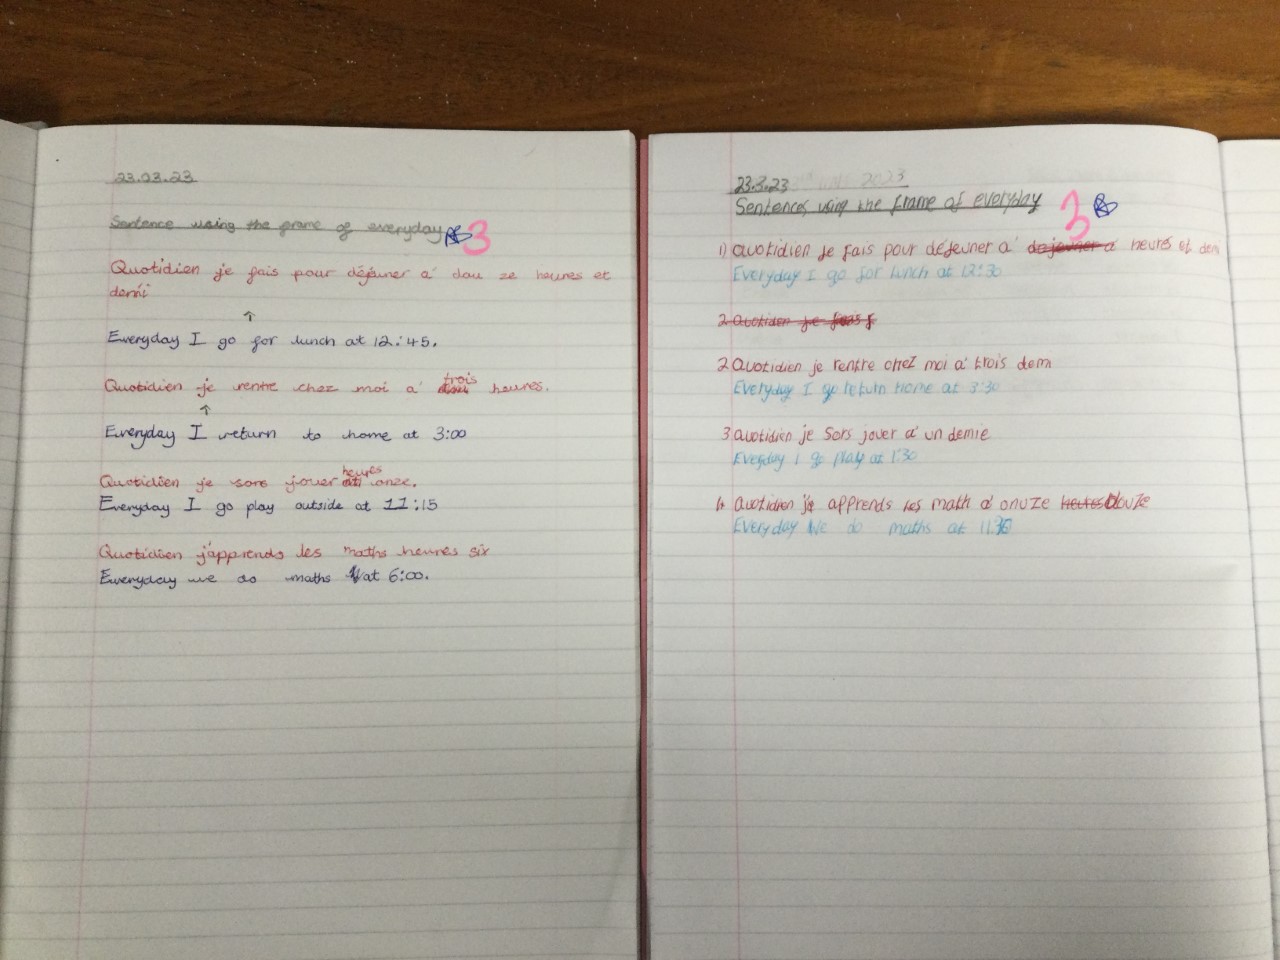 23.03.23
Sentence using the frame of everyday 3
Quotidien je fais pour déjeuner a' dou ze heures et
demi
↑
Everyday I go for lunch at 12:45.
Quotidien je rentre chez moi a' trois heures.
↑
Everyday I return to home at 3:00
Quotidien je sors jouer heures onze.
Everyday I go play outside at 11:15
Quotidien j'apprends les maths heures six
Everyday we do maths at 6:00.
23.3.23 2023
Sentences using the frame of everyday 3
1) Quotidien je fais pour déjeuner a' dejeuner a' heures et demi
Everyday I go for lunch at 12:30
2 Quotidien je fais f
2 Quotidien je rentre chez moi a' trois demi
Everyday I go return home at 3:30
3 Quotidien je sors jouer a' un demie
Everyday I go play at 1:30
4 Quotidien je apprends les math a' onuze heures Douze
Everyday We do maths at